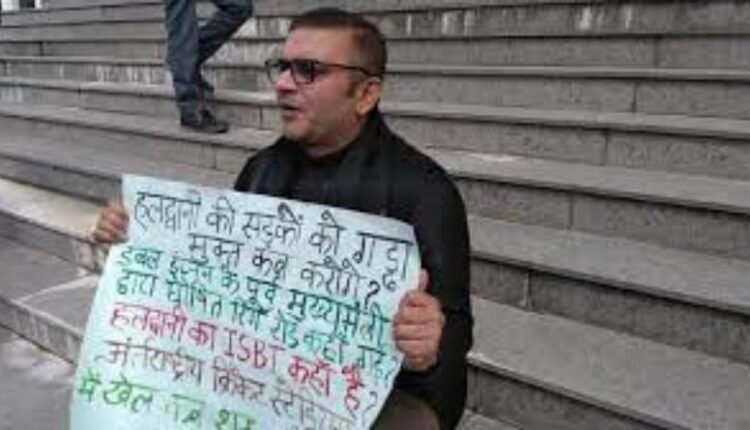 हलद्वानी की सड़कों को गड्ढा
मुक्त कब करोगे?
डबल इंजन के पूर्व मुख्यमंत्री
द्वारा घोषित रिंग रोड कहाँ गई?
हलद्वानी का ISBT कहाँ है?
अंर्तराष्ट्रीय क्रिकेट स्टेडियम
में खेल कब शुरू